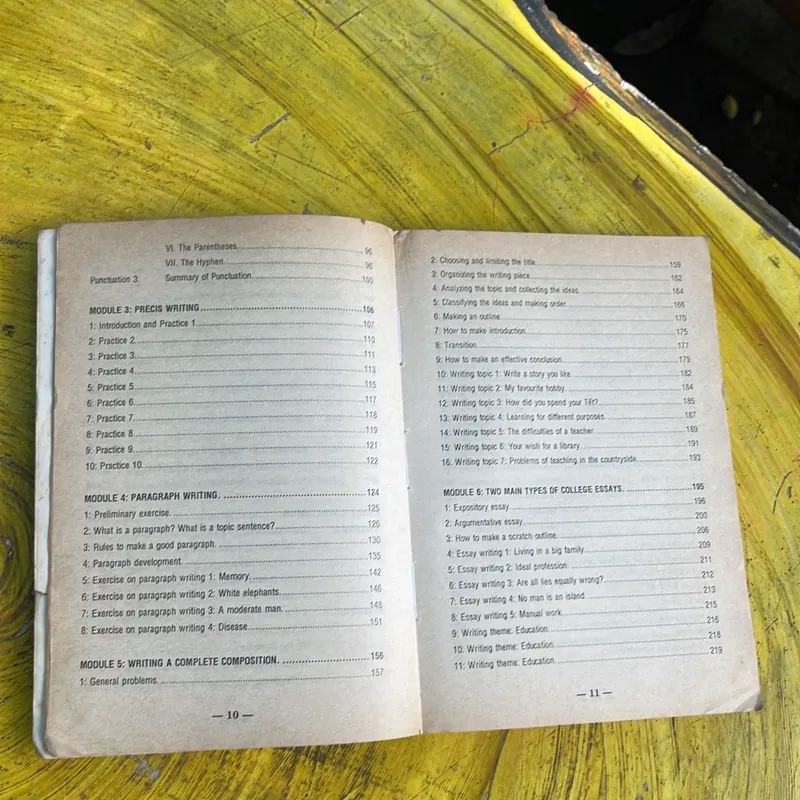 VI. The Parentheses............96
VII. The Hyphen............96
Punctuation 3: Summary of Punctuation............100
MODULE 3: PRECIS WRITING............106
1: Introduction and Practice 1............107
2: Practice 2............110
3: Practice 3............111
4: Practice 4............113
5: Practice 5............115
6: Practice 6............117
7: Practice 7............118
8: Practice 8............119
9: Practice 9............121
10: Practice 10............122
MODULE 4: PARAGRAPH WRITING............124
1: Preliminary exercise............125
2: What is a paragraph? What is a topic sentence?............126
3: Rules to make a good paragraph............130
4: Paragraph development............135
5: Exercise on paragraph writing 1: Memory............142
6: Exercise on paragraph writing 2: White elephants............146
7: Exercise on paragraph writing 3: A moderate man............148
8: Exercise on paragraph writing 4: Disease............151
MODULE 5: WRITING A COMPLETE COMPOSITION............156
1: General problems............157
— 10 —
2: Choosing and limiting the title............159
3: Organizing the writing piece............162
4: Analyzing the topic and collecting the ideas............164
5: Classifying the ideas and making order............166
6: Making an outline............170
7: How to make introduction............175
8: Transition............177
9: How to make an effective conclusion............179
10: Writing topic 1: Write a story you like............182
11: Writing topic 2: My favourite hobby............184
12: Writing topic 3: How did you spend your Tết?............185
13: Writing topic 4: Learning for different purposes............187
14: Writing topic 5: The difficulties of a teacher............189
15: Writing topic 6: Your wish for a library............191
16: Writing topic 7: Problems of teaching in the countryside............193
MODULE 6: TWO MAIN TYPES OF COLLEGE ESSAYS............195
1: Expository essay............196
2: Argumentative essay............200
3: How to make a scratch outline............206
4: Essay writing 1: Living in a big family............209
5: Essay writing 2: Ideal profession............211
6: Essay writing 3: Are all lies equally wrong?............212
7: Essay writing 4: No man is an island............213
8: Essay writing 5: Manual work............215
9: Writing theme: Education............216
10: Writing theme: Education............218
11: Writing theme: Education............219
— 11 —